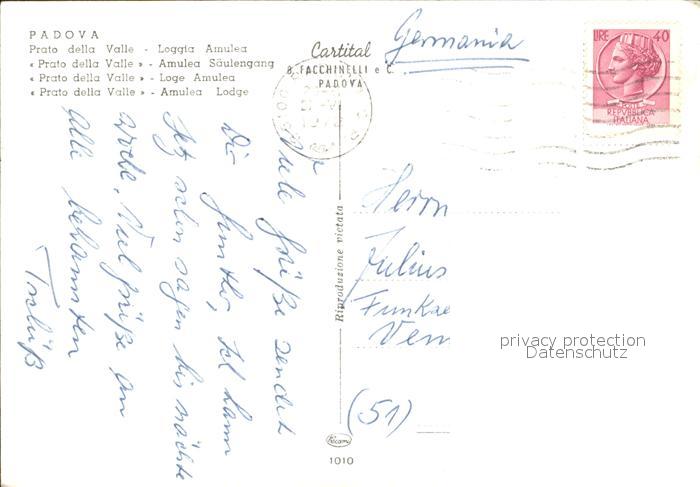 PADOVA
Prato della Valle - Loggia Amulea
« Prato della Valle » - Amulea Säulengang
« Prato della Valle » - Loge Amulea
« Prato della Valle » - Amulea Lodge
Cartital
B. FACCHINELLI e C.
PADOVA
Germania
LIRE 40
POSTE
REPVBBLICA
ITALIANA
Viele Grüße sendet
Dir Ich kann
schon sagen bis nächste
Woche. Viel Grüße an
alle bekannten
Tschüß
Riproduzione vietata
Herrn
Julius
Funkze
Ven
(51)
privacy protection
Datenschutz
Kecomi
1010